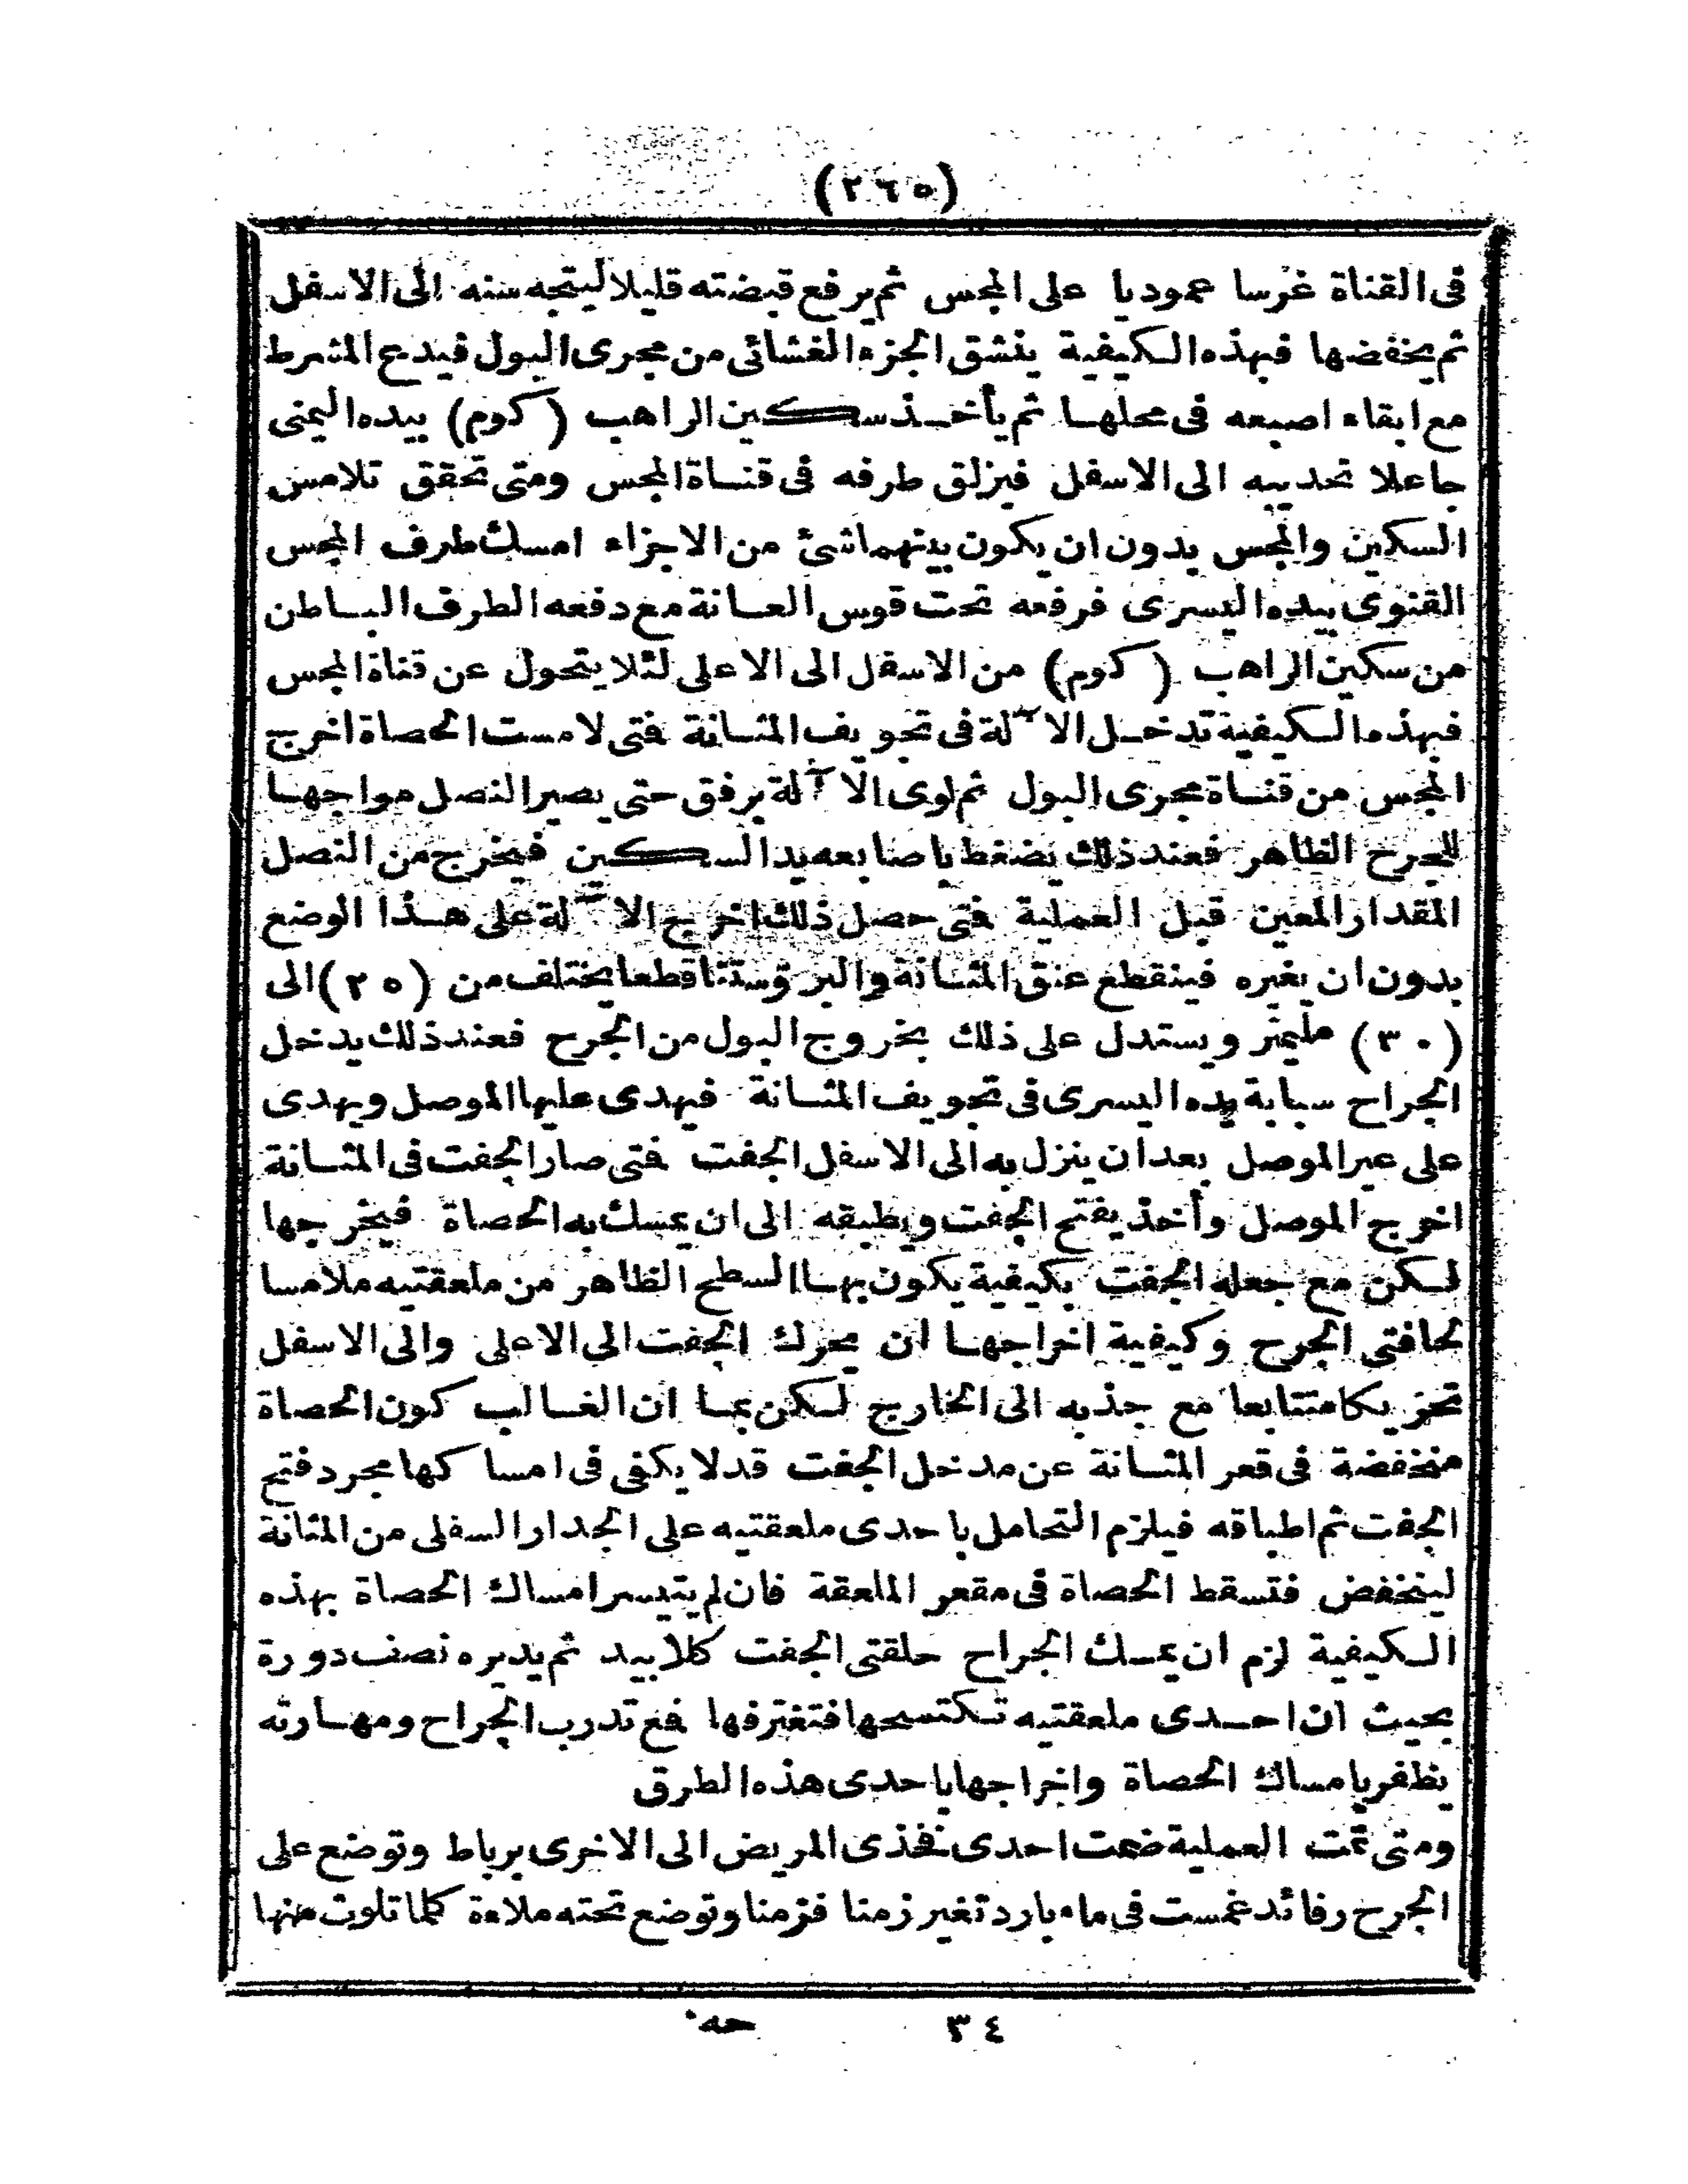 (٢٦٥)
فى القناة غرسا عموديا على المجس ثم يرفع قبضته قليلا ليتجه سنه الى الاسفل
ثم يخفضها فبهذه الكيفية ينشق الجزء الغشائى من مجرى البول فيدع المشرط
مع ابقاء اصبعه فى محلها ثم يأخذ سكين الراهب (كوم) بيده اليمنى
جاعلا تحديبه الى الاسفل فيزلق طرفه فى قناة المجس ومتى تحقق تلامس
السكين والمجس بدون ان يكون بينهما شئ من الاجزاء امسك طرف المجس
القنوى بيده اليسرى فرفعه تحت قوس العانة مع دفعه الطرف الباطن
من سكين الراهب (كوم) من الاسفل الى الاعلى لئلا يتحول عن قناة المجس
فبهذه الكيفية تدخل الآلة فى تجويف المثانة فتى لامست الحصاة اخرج
المجس من قناة مجرى البول ثم لوى الآلة برفق حتى يصير النصل مواجها
للجرح الظاهر فعند ذلك يضغط باصابعه يد السكين فيخرج من النصل
المقدار المعين قبل العملية فتى حصل ذلك اخرج الآلة على هذا الوضع
بدون ان يغيره فينقطع عنق المثانة والبروستتا قطعا يختلف من (٢٥) الى
(٣٠) مليمتر ويستدل على ذلك بخروج البول من الجرح فعند ذلك يدخل
الجراح سبابة يده اليسرى فى تجويف المثانة فيهدى عليها الموصل ويهدى
على عير الموصل بعد ان ينزل به الى الاسفل الجفت فتى صار الجفت فى المثانة
اخرج الموصل وأخذ يفتح الجفت ويطبقه الى ان يمسك به الحصاة فيخرجها
لكن مع جعله الجفت بكيفية يكون بها السطح الظاهر من ملعقتيه ملامسا
لحافتى الجرح وكيفية اخراجها ان يحرك الجفت الى الاعلى والى الاسفل
تحريكا متتابعا مع جذبه الى الخارج لكن بما ان الغالب كون الحصاة
منخفضة فى قعر المثانة عن مدخل الجفت قد لا يكفى فى امساكها مجرد فتح
الجفت ثم اطباقه فيلزم التحامل باحدى ملعقتيه على الجدار السفلى من المثانة
لينخفض فتسقط الحصاة فى مقعر الملعقة فان لم يتيسر امساك الحصاة بهذه
الكيفية لزم ان يمسك الجراح حلقتى الجفت كلا بيد ثم يديره نصف دورة
بحيث ان احدى ملعقتيه تكتسحها فتغترفها فمع تدرب الجراح ومهارته
يظفر بامساك الحصاة واخراجها باحدى هذه الطرق
ومتى تمت العملية ضمت احدى فخذى المريض الى الاخرى برباط وتوضع على
الجرح رفائد غمست فى ماء بارد تغير زمنا فزمنا وتوضع تحته ملاءة كلما تلوث منها
٣٤
حه